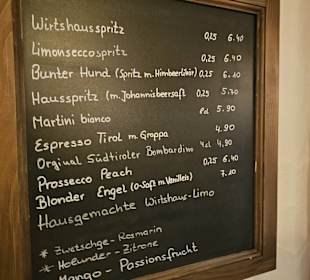 Wirtshausspritz 0,25 6.40
Limonseccospritz 0,25 6.40
Bunter Hund (Spritz m. Himbeerlikör) 0,25 6.10
Hausspritz (m. Johannisbeersaft 0,25 5.70
Martini bianco 5.90
Espresso Tirol m. Grappa 4.90
Orginal Südtiroler Bombardino 4cl 4.90
Prossecco Peach 0,25 6.40
Blonder Engel (O-Saft m. Vanilleis) 7.10
Hausgemachte Wirtshaus-Limo
* Zwetschge - Rosmarin
* Hollunder - Zitrone
Mango - Passionsfrucht